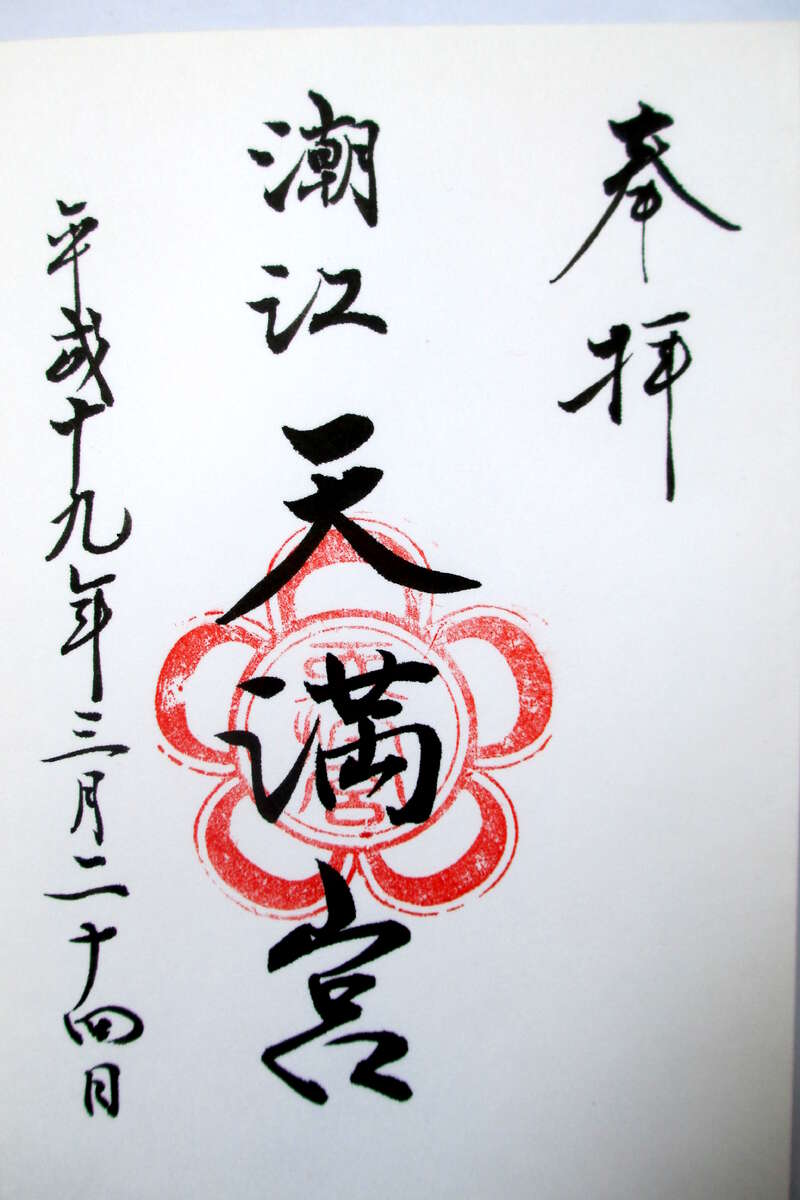 奉拝
潮江天満宮
平成十九年三月二十四日